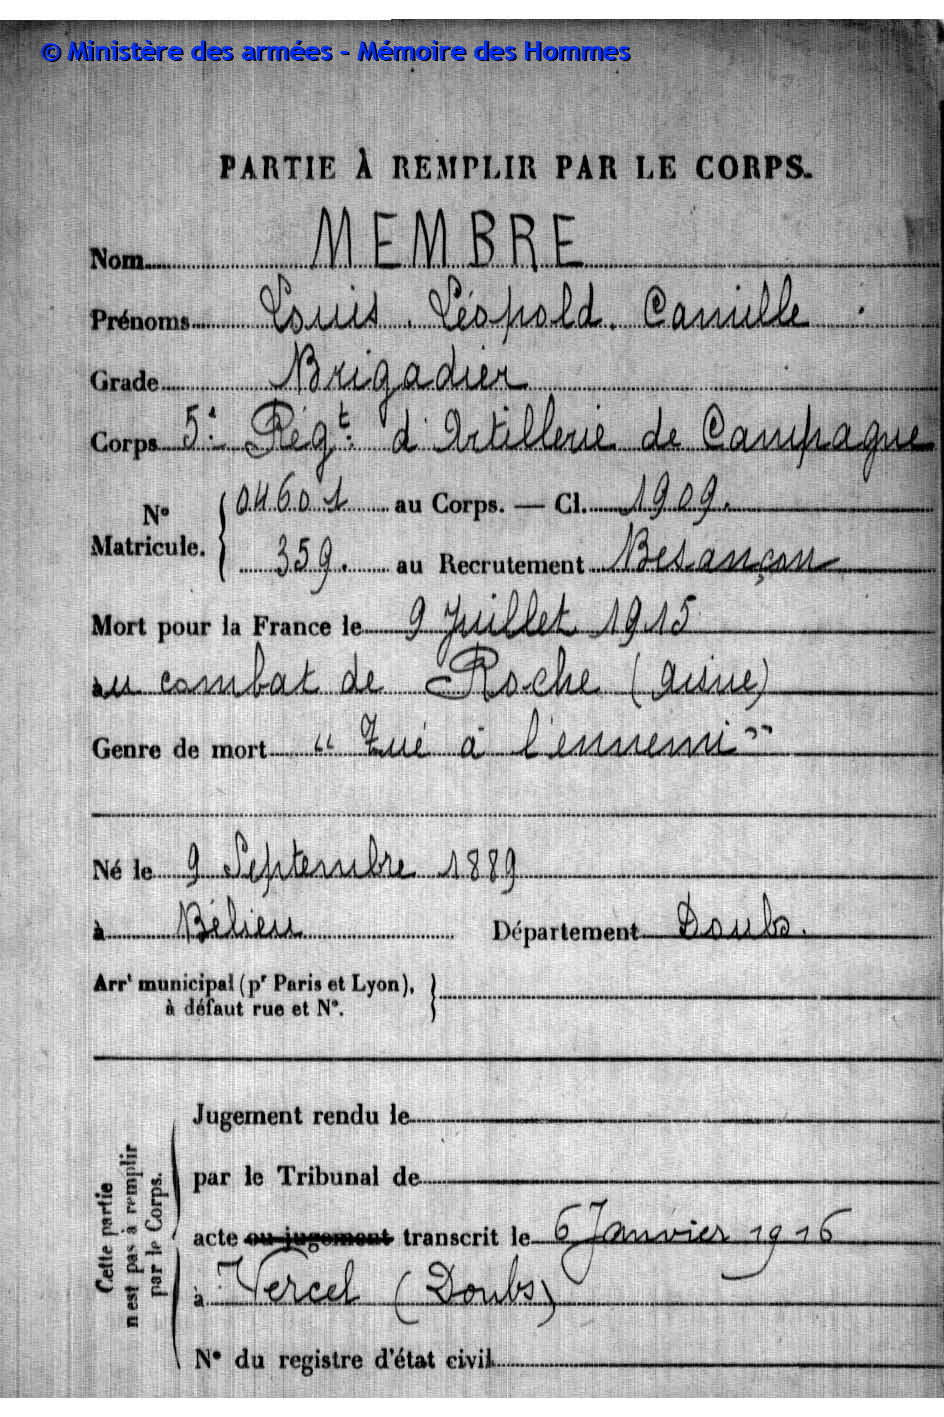 © Ministère des armées - Mémoire des Hommes
PARTIE À REMPLIR PAR LE CORPS.
Nom MEMBRE
Prénoms Louis. Léopold. Camille
Grade Brigadier
Corps 5e Régt d'Artillerie de Campagne
N° Matricule. 04601 au Corps. — Cl. 1909.
359. au Recrutement Besançon
Mort pour la France le 9 Juillet 1915
au combat de Roche (Aisne)
Genre de mort "Tué à l'ennemi"
Né le 9 Septembre 1889
à Bélieu Département Doubs.
Arrt municipal (pr Paris et Lyon),
à défaut rue et N°.
Cette partie
n'est pas à remplir
par le Corps.
Jugement rendu le
par le Tribunal de
acte ou jugement transcrit le 6 Janvier 1916
à Vercel (Doubs)
N° du registre d'état civil